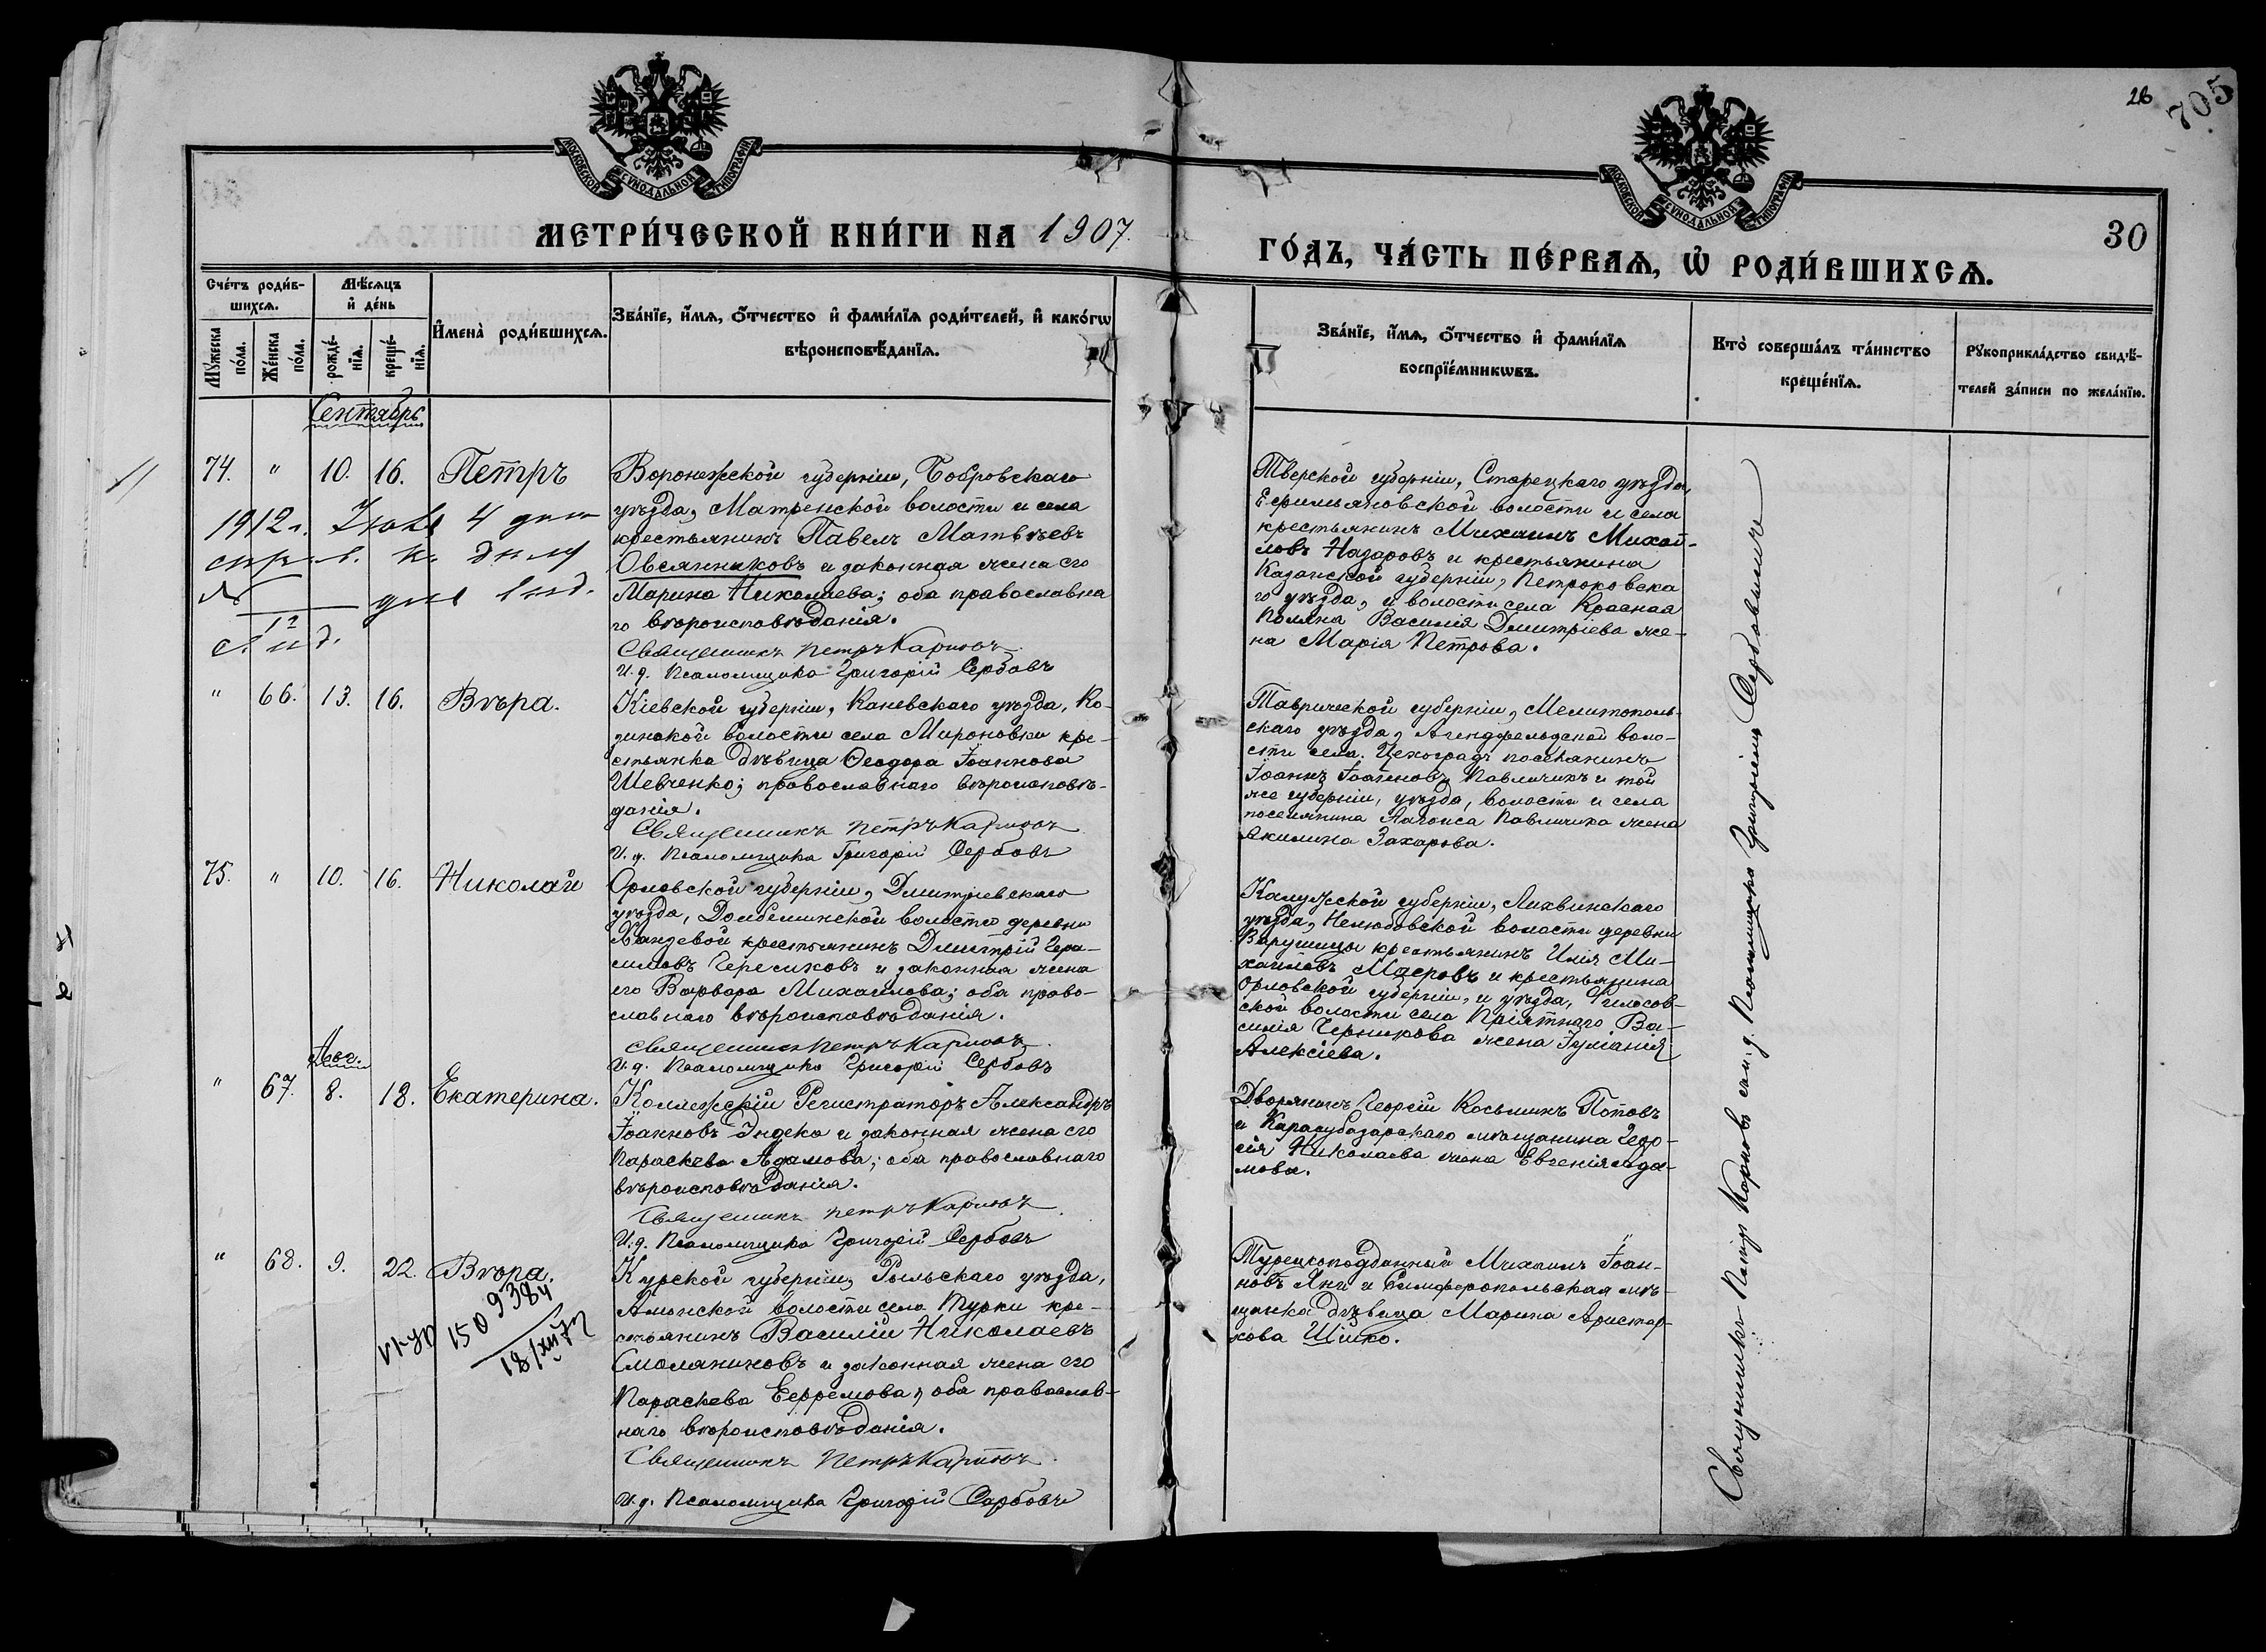 28
705
МОСКОВСКОЙ СѴНОДАЛЬНОЙ ТИПОГРАФІИ
МОСКОВСКОЙ СѴНОДАЛЬНОЙ ТИПОГРАФІИ
МЕТРИ́ЧЕСКОЙ КНИ́ГИ НА 1907.
ГО́ДЪ, ЧА́СТЬ ПЕ́РВАѦ, Ѡ҆ РОДИ́ВШИХСѦ.
30
Сче́тъ роди́в-
шихсѧ.
Мꙋ́жеска
по́ла.
Же́нска
по́ла.
Мѣ́сѧцъ
и҆ де́нь
рожде́-
нїѧ.
креще́-
нїѧ.
И҆мена̀ роди́вшихсѧ.
Зва́нїе, и҆́мѧ, ѻ҆́тчество и҆ фами́лїѧ роди́телей, и҆ како́гѡ
вѣроисповѣ́данїѧ.
Зва́нїе, и҆́мѧ, ѻ҆́тчество и҆ фами́лїѧ
воспрїе́мникѡвъ.
Кто̀ соверша́лъ та́инство
креще́нїѧ.
Рꙋкоприкла́дство свидѣ́-
телей за́писи по жела́нїю.
Сентябрь
74. " 10. 16. Петръ
Воронежской губерніи, Бобровскаго
уѣзда, Матренской волости и села
крестьянинъ Павелъ Матвѣевъ
Овсянниковъ и законная жена его
Марина Николаева; оба православна
го вѣроисповѣданія.
Священникъ Петръ Карповъ
И. д. Псаломщика Григорій Сербовъ
1912 г. 4 дня
Тверской губерніи, Старецкаго уѣзда,
Ефимьяновской волости и села
крестьянинъ Михаилъ Михай-
ловъ Назаровъ и крестьянина
Казанской губерніи, Петроковска
го уѣзда, и волости села Красная
Поляна Василія Дмитріева же-
на Марія Петрова.
" 66. 13. 16. Вѣра.
Кіевской губерніи, Каневскаго уѣзда, Ко-
зинской волости села Мироновки кре-
стьянка дѣвица Ѳеодора Іоаннова
Шевченко; православнаго вѣроисповѣ-
данія.
Священникъ Петръ Карповъ
И. д. Псаломщика Григорій Сербовъ
Таврической губерніи, Мелитополь-
скаго уѣзда, волο-
сти села Чехоградъ поселянинъ
Іоаннъ Іоанновъ Павличикъ и той
же губерніи, уѣзда, волости и села
поселянина Павличика жена
Акилина Захарова.
75. " 10. 16. Николай
Орловской губерніи, Дмитріевскаго
уѣзда, волости деревни
крестьянинъ Дмитрій Гера-
симовъ и законная жена
его Варвара Михаилова; оба право-
славнаго вѣроисповѣданія.
Священникъ Петръ Карповъ
И. д. Псаломщика Григорій Сербовъ
Калужской губерніи, Лихвинскаго
уѣзда, Нелюбовской волости деревни
крестьянинъ Илія Ми-
хаиловъ и крестьянина
Орловской губерніи, и уѣзда,
ской волости села Пріятнаго Ва-
силія Черникова жена Іуліанія
Алексіева.
Авг.
" 67. 8. 18. Екатерина.
Коллежскій Регистраторъ Александръ
Іоанновъ Индеко и законная жена его
Параскева Адамова; оба православнаго
вѣроисповѣданія.
Священникъ Петръ Карповъ
И. д. Псаломщика Григорій Сербовъ
Дворянинъ Георгій Косьминъ Поповъ
и Карасубазарскаго мѣщанина Геор-
гія Николаева жена Евгенія Ада-
мова.
" 68. 9. 22. Вѣра.
150938
Курской губерніи, Рыльскаго уѣзда,
Амонской волости села Турки кре-
стьянинъ Василій Николаевъ
Смоляниковъ и законная жена его
Параскева Ефремова, оба православ-
наго вѣроисповѣданія.
Священникъ Петръ Карповъ
И. д. Псаломщика Григорій Сербовъ
Турецкоподданный Михаилъ Іоан-
новъ Яни и Симферопольская мѣ-
щанка дѣвица Марина Аристар-
хова Шико.
Священникъ Петръ Карповъ съ и. д. Псаломщика Григоріемъ Сербовымъ